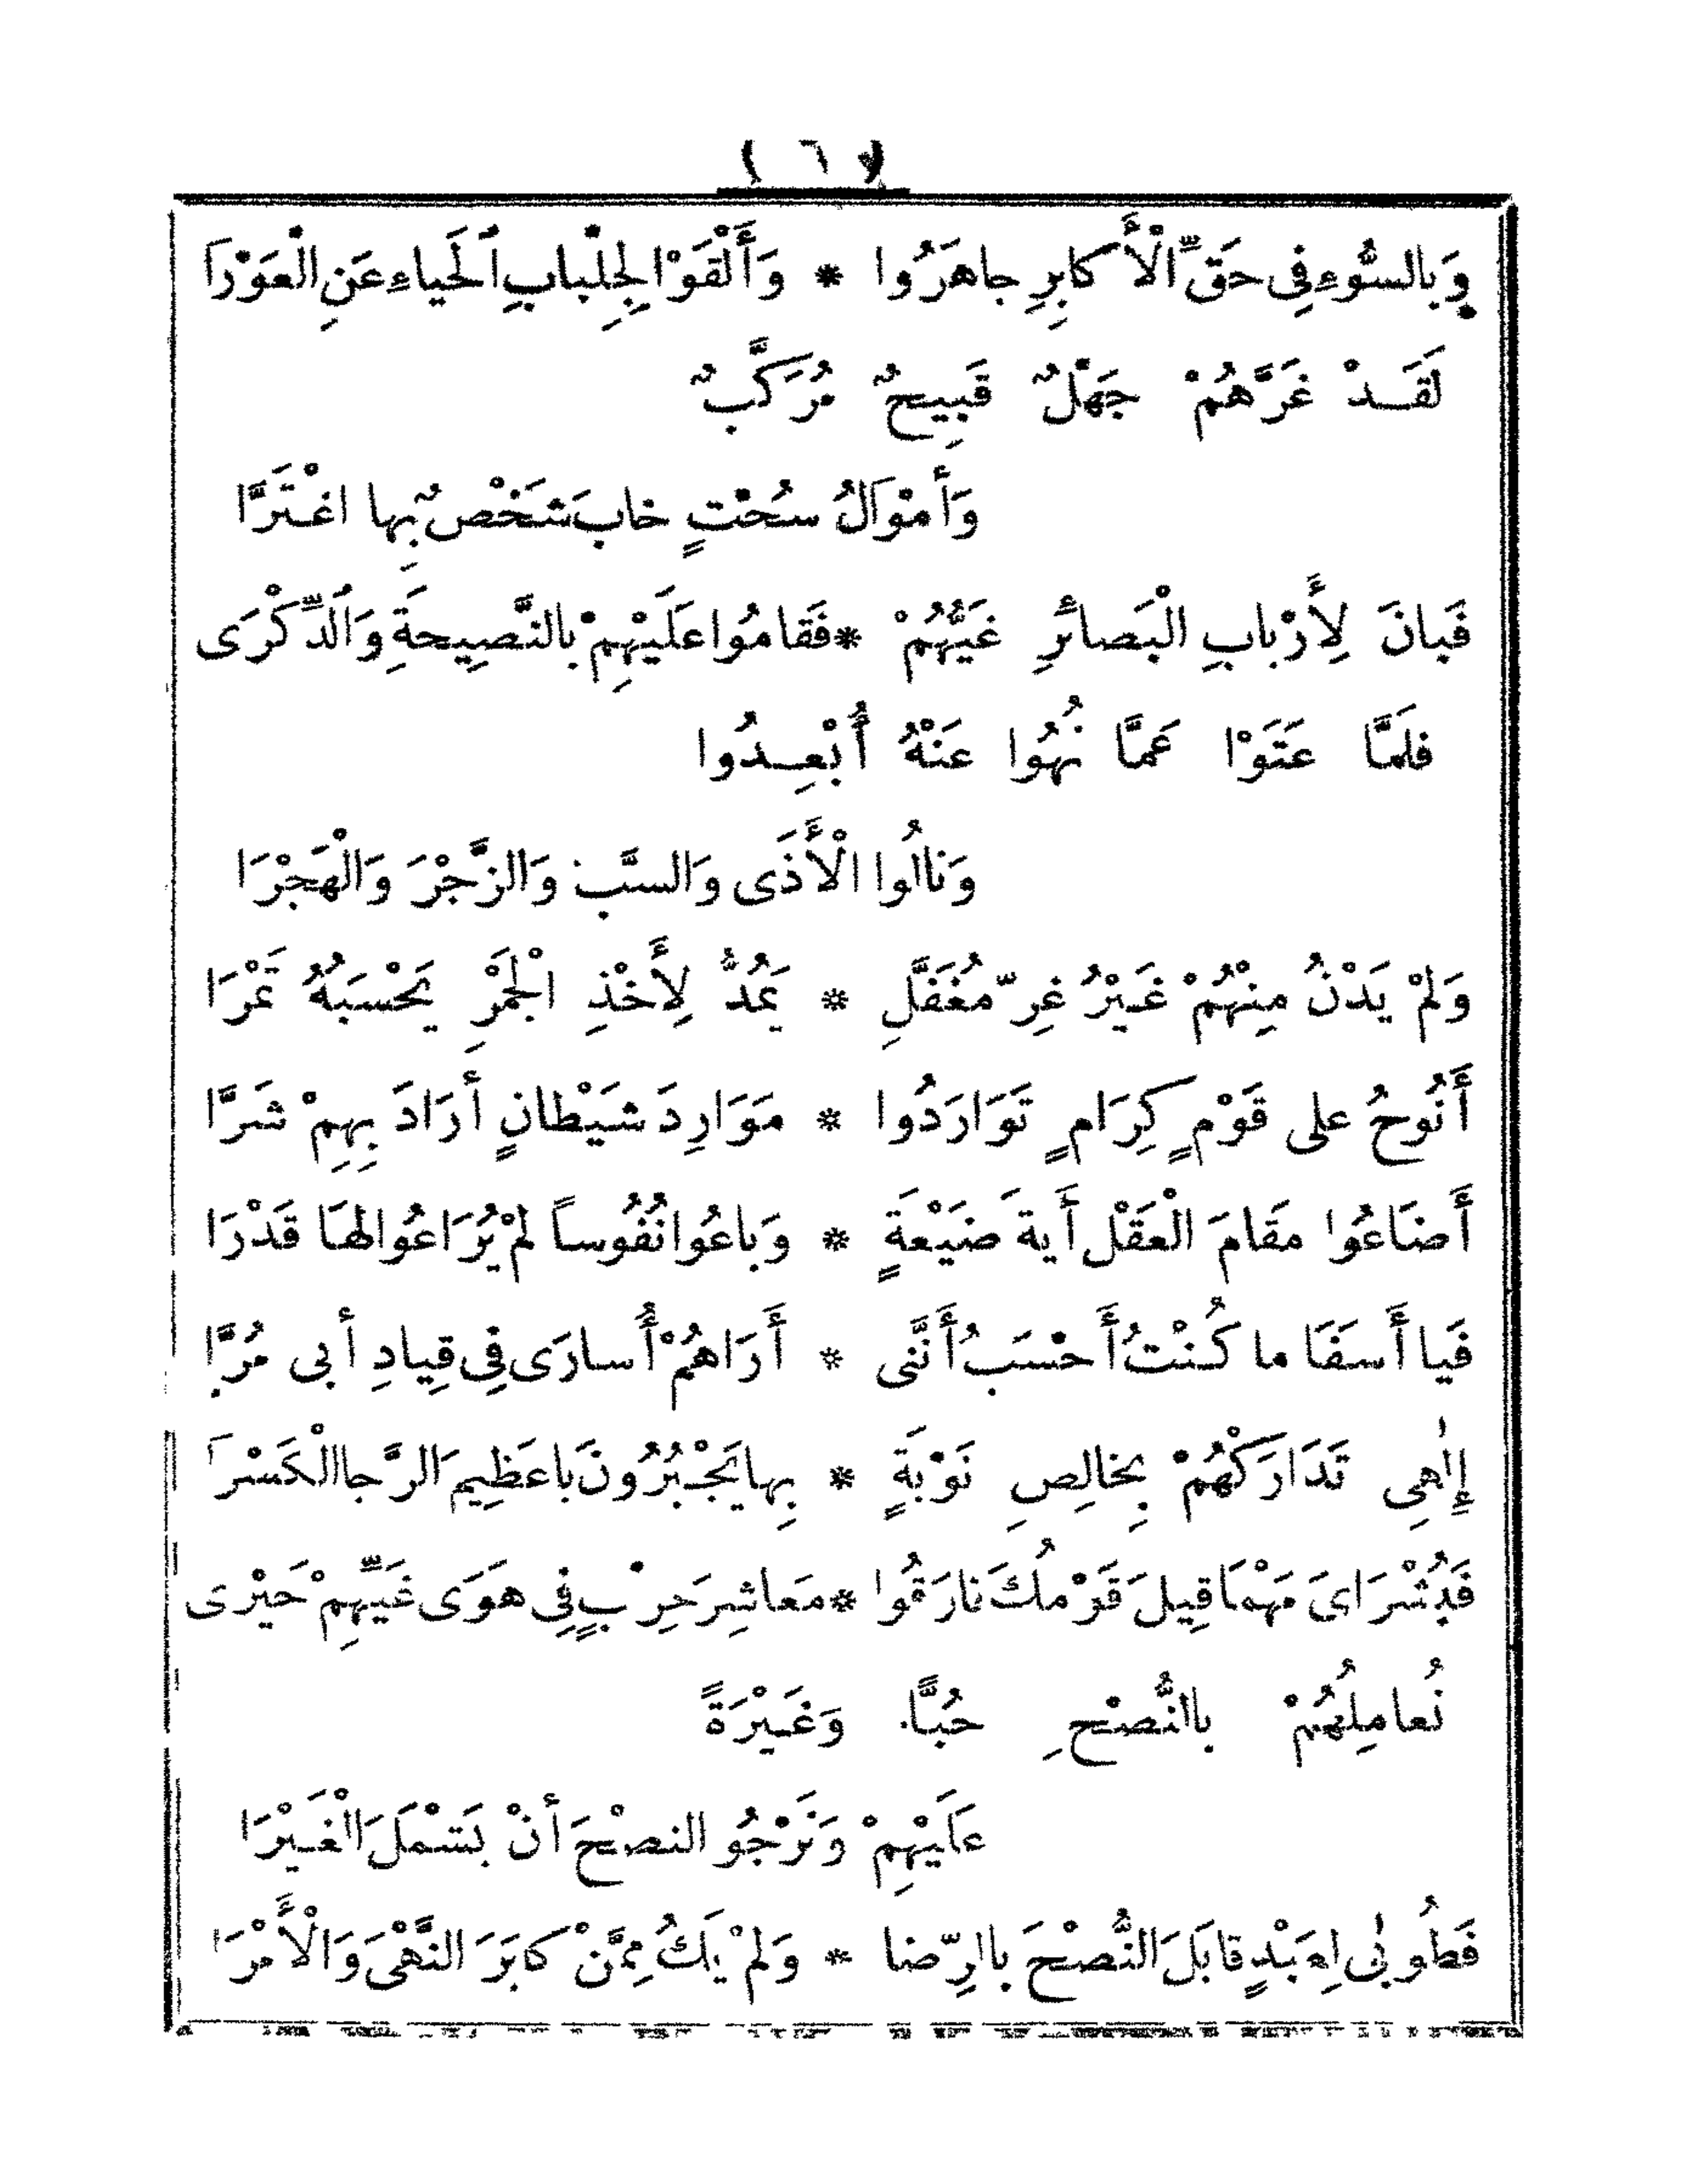 ( ٦ )
وَبِالسُّوءِ فِى حَقِّ الْأَكابِرِ جاهَرُوا * وَأَلْقَوْا لِجِلْبابِ ٱلْحَياءِ عَنِ الْعَوْرَا
لَقَــدْ غَرَّهُمْ جَهْلٌ قَبِيحٌ مُرَكَّبٌ
وَأَمْوَالُ سُحْتٍ خابَ شَخْصٌ بِها اغْتَرَّا
فَبانَ لِأَرْبابِ الْبَصائرِ غَيُّهُمْ * فَقامُوا عَلَيْهِمْ بالنَّصِيحةِ وَالذِّكْرَى
فلَمَّا عَتَوْا عَمَّا نُهُوا عَنْهُ أُبْعِــدُوا
وَنالُوا الْأَذَى وَالسَّبَّ وَالزَّجْرَ وَالْهَجْرَا
وَلَمْ يَدْنُ مِنْهُمْ غَيْرُ غِرٍّ مُغَفَّلِ * يَمُدُّ لِأَخْذِ الْجَمْرِ يَحْسَبُهُ تَمْرَا
أَنُوحُ على قَوْمٍ كِرَامٍ تَوَارَدُوا * مَوَارِدَ شَيْطانٍ أَرَادَ بِهِمْ شَرَّا
أَضَاعُوا مَقَامَ الْعَقْلِ أَيةَ ضَيْعَةٍ * وَباعُوا نُفُوساً لمْ يُرَاعُوا لهَا قَدْرَا
فَيا أَسَفَا ما كُنْتُ أَحْسَبُ أَنَّنى * أَرَاهُمْ أُسارَى فِى قِيادِ أَبى مُرَّا
إِلٰهِى تَدَارَكْهُمْ بِخالِصِ تَوْبَةٍ * بِها يَجْبُرُونَ يا عَظِيمَ الرَّجا الْكَسْرَا
فَبُشْرَاىَ مَهْمَا قِيلَ قَوْمُكَ فارَقُوا * مَعاشِرَ حِرْبٍ فِى هَوَى غَيِّهِمْ حَيْرى
نُعامِلُهُمْ بالنُّصْحِ حُبًّا وَغَيْرَةً
عَلَيْهِمْ وَنَرْجُو النصْحَ أَنْ يَشْمَلَ الْغَيْرَا
فَطُوبَى لِعَبْدٍ قابَلَ النُّصْحَ بالرِّضا * وَلمْ يَكُ مِمَّنْ كابَرَ النَّهْىَ وَالْأَمْرَا